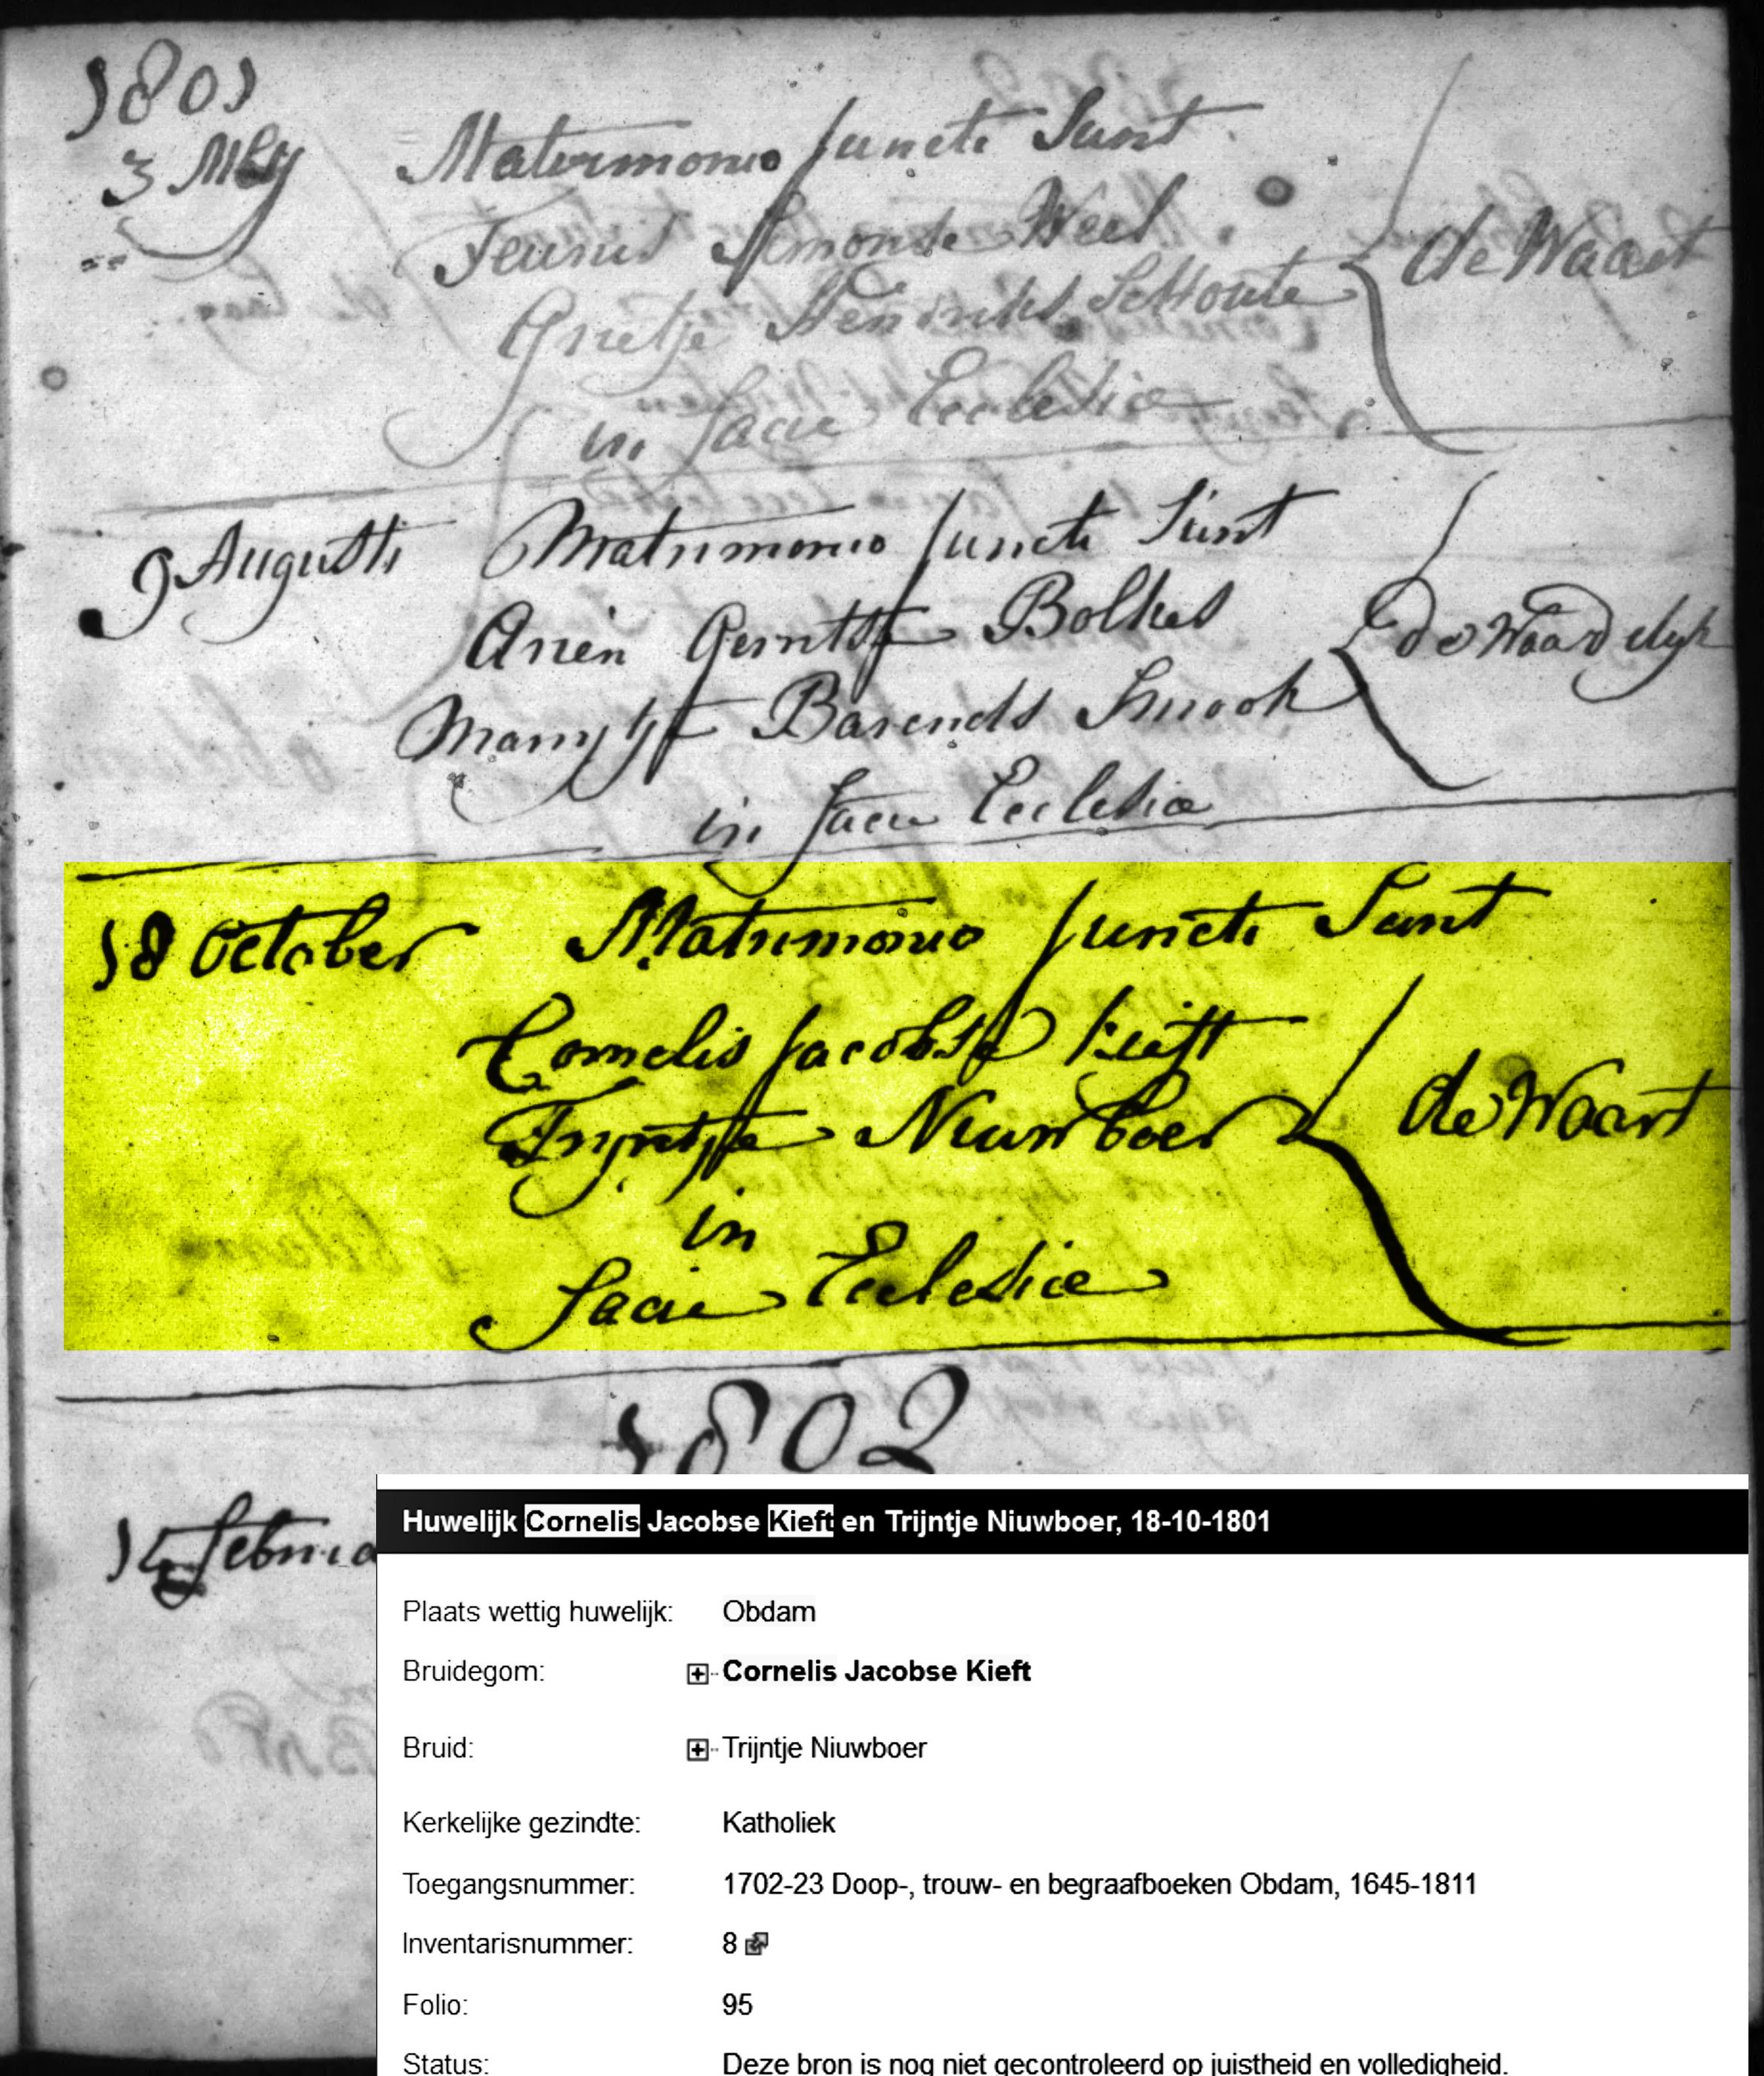 1801
3 Mey Matermonio Juncti Sunt
Teunis Simonse Weel
Grietje Hendriks Schoute de Waart
in facie Ecclesiæ
9 Augusti Matrimonio Juncti Sunt
Arien Gerritse Bolkes
Marrytje Barends Smook de Waardelyk
in facie Ecclesiæ
18 October Matrimonio Juncti Sunt
Cornelis Jacobse Kieft
Tryntje Niuwboer de Waart
in
facie Ecclesiæ
1802
14 februa
Huwelijk Cornelis Jacobse Kieft en Trijntje Niuwboer, 18-10-1801
Plaats wettig huwelijk: Obdam
Bruidegom: Cornelis Jacobse Kieft
Bruid: Trijntje Niuwboer
Kerkelijke gezindte: Katholiek
Toegangsnummer: 1702-23 Doop-, trouw- en begraafboeken Obdam, 1645-1811
Inventarisnummer: 8
Folio: 95
Status: Deze bron is nog niet gecontroleerd op juistheid en volledigheid.